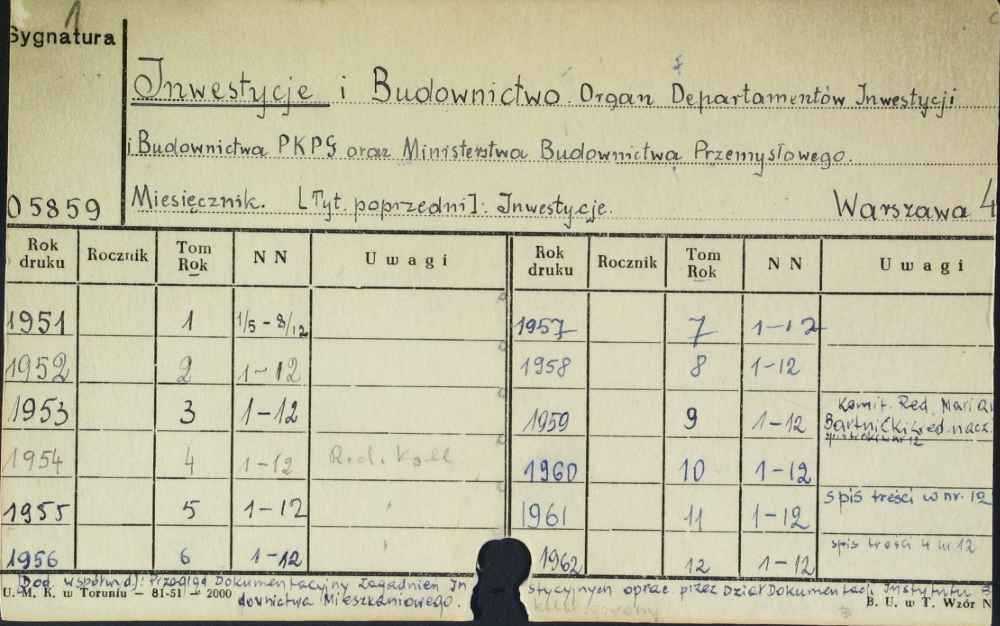 1
Sygnatura
Inwestycje i Budownictwo. Organ Departamentów Inwestycji
i Budownictwa PKPG oraz Ministerstwa Budownictwa Przemysłowego.
05859
Miesięcznik. [Tyt. poprzedni]: Inwestycje. Warszawa 4
Rok druku Rocznik Tom Rok NN Uwagi Rok druku Rocznik Tom Rok NN Uwagi
1951 1 1/5 - 8/12 1957 7 1-12
1952 2 1-12 1958 8 1-12
1953 3 1-12 1959 9 1-12 Komit. Red. Marian
Bartnicki red. nacz.
spis treści w nr 12
1954 4 1-12 Red. Koll 1960 10 1-12
1955 5 1-12 1961 11 1-12 spis treści w nr. 12
1956 6 1-12 1962 12 1-12 spis treści 4 nr 12
[Dod. współwyd]: Przegląd Dokumentacyjny Zagadnień In stycyjnych oprac przez Dział Dokumentacji Instytutu B
downictwa Mieszkaniowego.
U. M. K. w Toruniu — 81-51 — 2000 B. U. w T. Wzór N